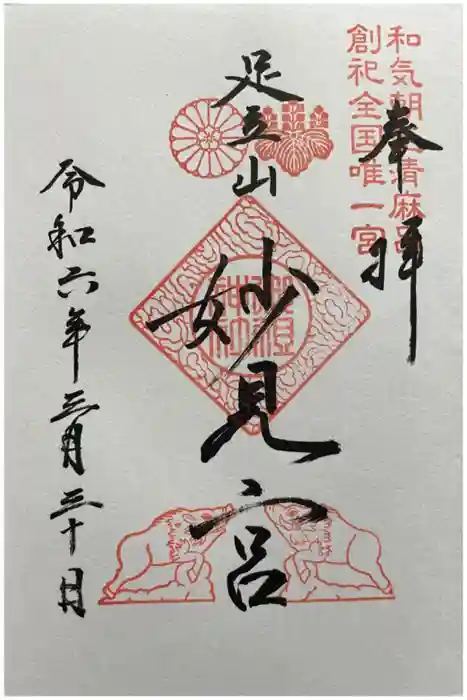 和気朝臣清麻呂
創祀全国唯一宮
奉拝
足立山
妙見宮
御祖神社
令和六年三月三十日